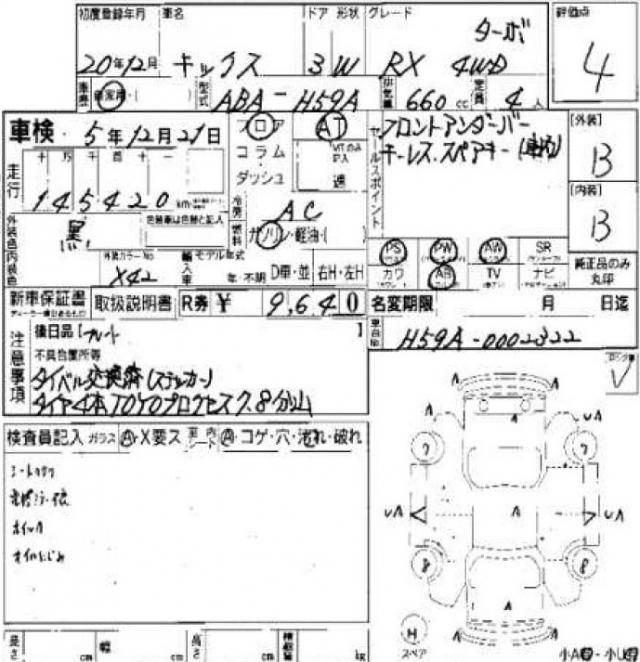 初度登録年月 車名 ドア 形状 グレード 評価点
ターボ
20年12月 キックス 3 W RX 4WD 4
車歴 自家用・( ) 型式 ABA-H59A 排気量 660 cc 定員 4人
車検 5年12月21日 フロア AT
コラム
ダッシュ
セールスポイント フロントアンダーバー
キーレス.スペアキー
[外装] B
[内装] B
走行 十 万 千 百 十 一
145420 km
冷房 AC
燃料 ガソリン・軽油・( )
外装色 黒 色替車は色替と記入
内装色 外装カラーNo X42 輸入車 モデル年式 年・不明 D車・並 右H・左H
PS PW AW SR
カワ AB TV ナビ
純正品のみ丸印
新車保証書 取扱説明書 R券 ¥ 9,640
名変期限 月 日迄
H59A-0002322
注意事項 後日品【 】
不具合箇所等
タイベル交換済(ステッカー)
タイヤ4本TOYOプロクセス7.8分山
検査員記入 ガラス A・X要ス 内 シート A・コゲ・穴・汚れ・破れ
オイルにじみ
V
A
A A
A UA
7 7
A A
UA A UA
8 8
A A
A
H
スペア
長さ cm 幅 cm 高さ cm 積載量 kg